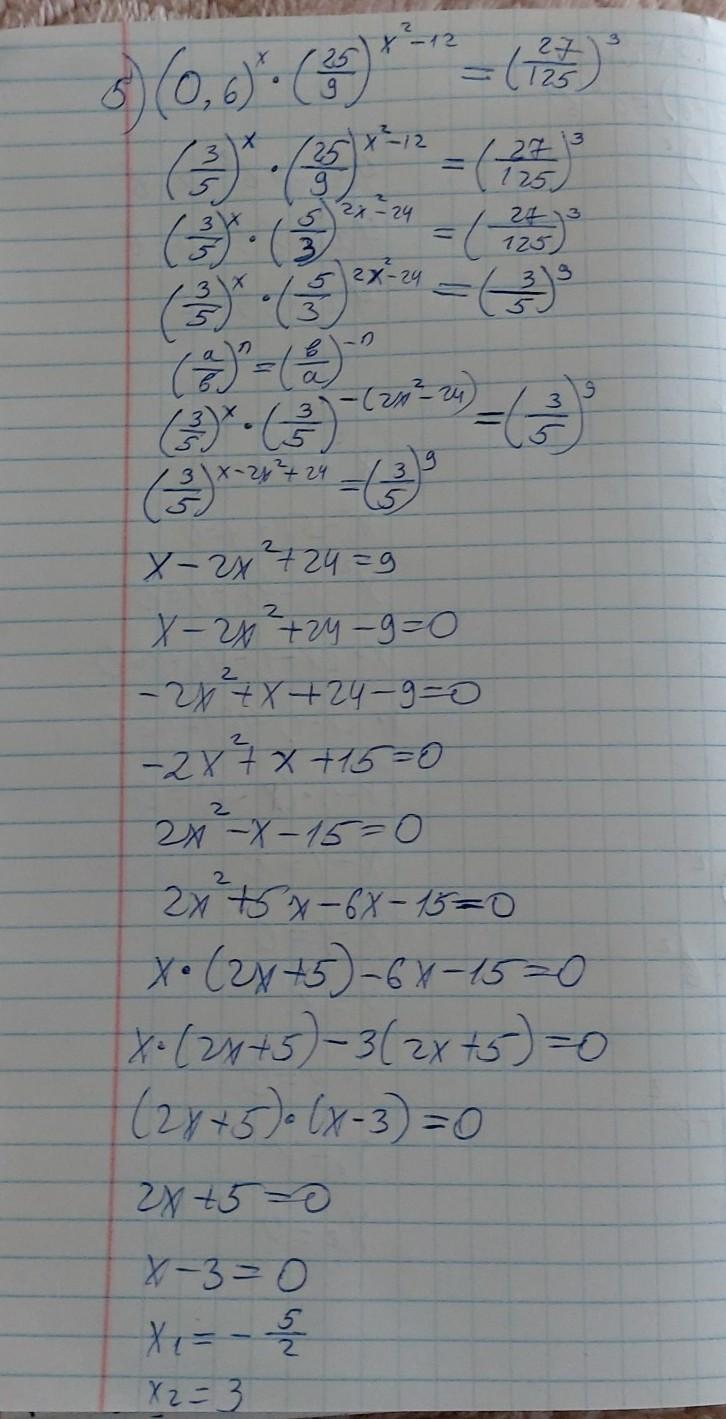 5) (0,6)^x · (25/9)^(x²-12) = (27/125)³
(3/5)^x · (25/9)^(x²-12) = (27/125)³
(3/5)^x · (5/3)^(2x²-24) = (27/125)³
(3/5)^x · (5/3)^(2x²-24) = (3/5)⁹
(a/в)^n = (в/a)^(-n)
(3/5)^x · (3/5)^(-(2x²-24)) = (3/5)⁹
(3/5)^(x-2x²+24) = (3/5)⁹
x-2x²+24=9
x-2x²+24-9=0
-2x²+x+24-9=0
-2x²+x+15=0
2x²-x-15=0
2x²+5x-6x-15=0
x·(2x+5)-6x-15=0
x·(2x+5)-3(2x+5)=0
(2x+5)·(x-3)=0
2x+5=0
x-3=0
x₁=-5/2
x₂=3